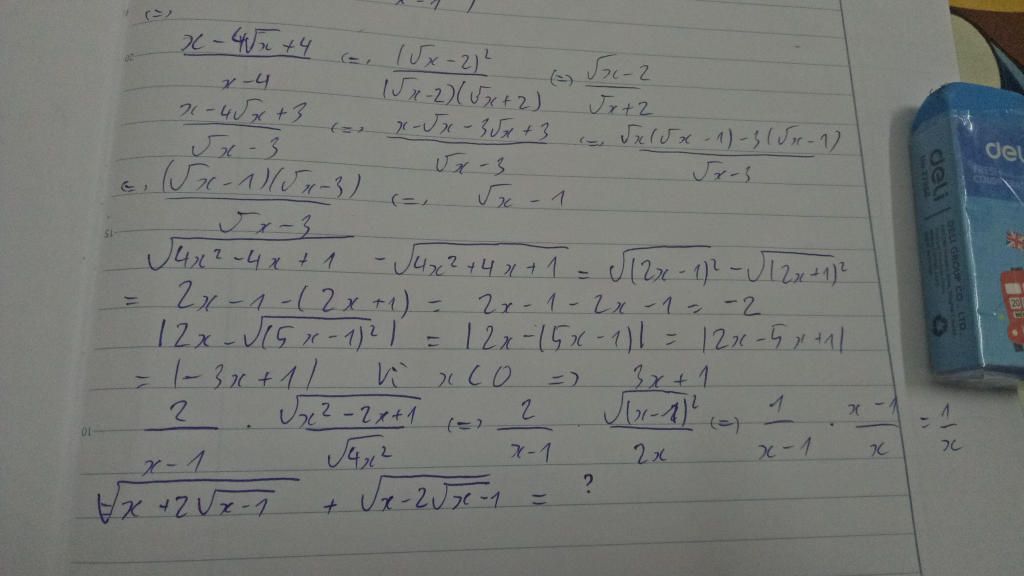 (=)
x - 4√x + 4 / x - 4 (=) (√x - 2)² / (√x - 2)(√x + 2) (=) √x - 2 / √x + 2
x - 4√x + 3 / √x - 3 (=) x - √x - 3√x + 3 / √x - 3 (=) √x(√x - 1) - 3(√x - 1) / √x - 3
(=) (√x - 1)(√x - 3) / √x - 3 (=) √x - 1
√(4x² - 4x + 1) - √(4x² + 4x + 1) = √(2x - 1)² - √(2x + 1)²
= 2x - 1 - (2x + 1) = 2x - 1 - 2x - 1 = -2
|2x - √(5x - 1)²| = |2x - (5x - 1)| = |2x - 5x + 1|
= |-3x + 1| Vì x < 0 => 3x + 1
2 / x - 1 · √(x² - 2x + 1) / √4x² (=) 2 / x - 1 · √(x - 1)² / 2x (=) 1 / x - 1 · x - 1 / x = 1 / x
√(x + 2√(x - 1)) + √(x - 2√x - 1) = ?
20
15
10
deli
deli
DELI
CO. LTD.